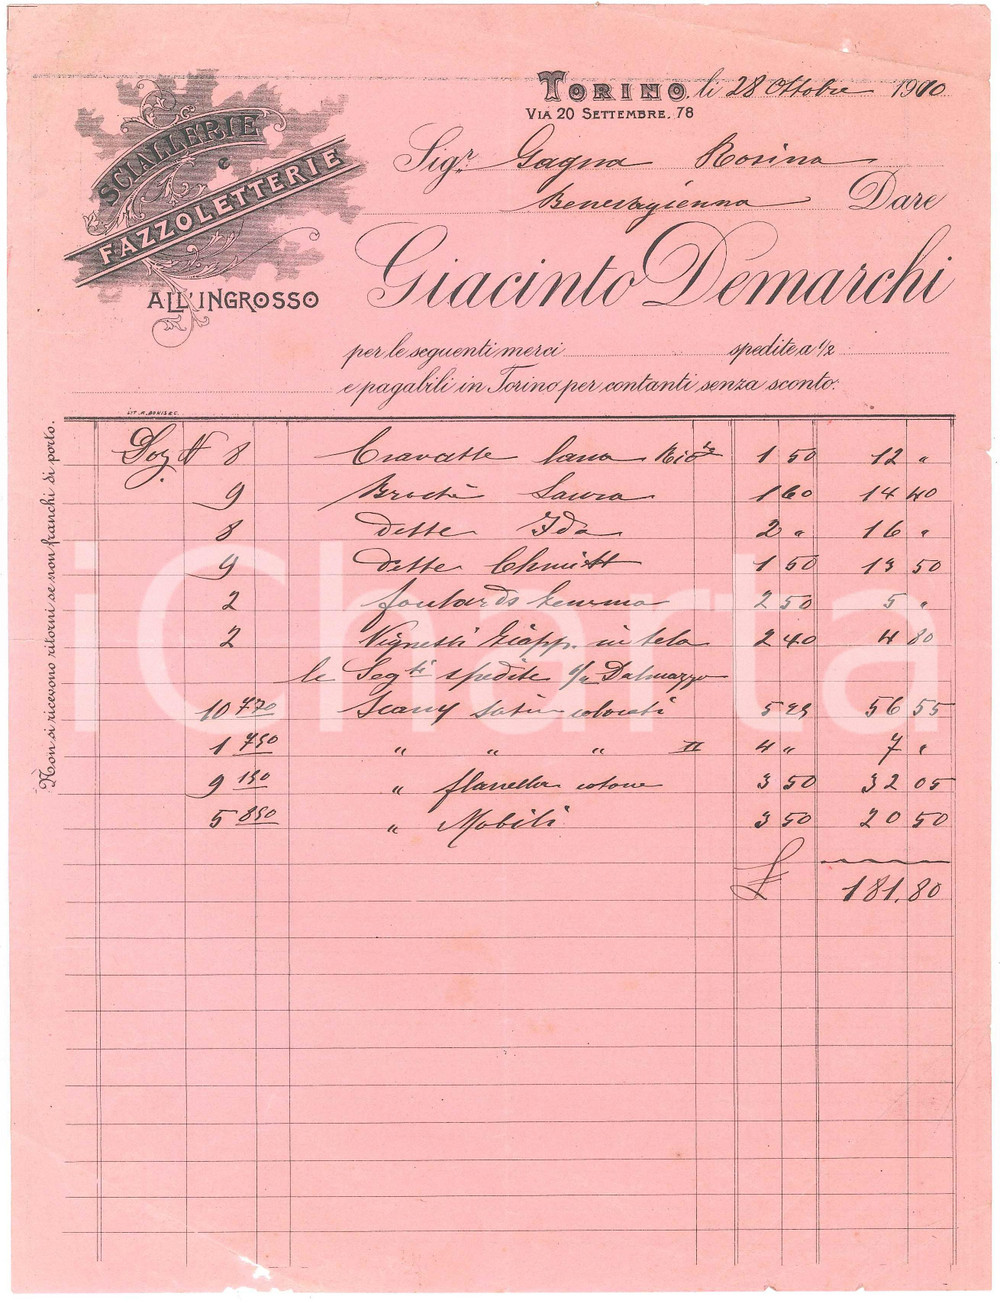 SCIALLERIE
e
FAZZOLETTERIE
ALL'INGROSSO
TORINO, li 28 Ottobre 1910
VIA 20 SETTEMBRE, 78
Sigr. Gagna Rosina
Benevagienna Dare
Giacinto Demarchi
per le seguenti merci spedite a 1/2
e pagabili in Torino per contanti senza sconto:
LIT. M. BONIS & C.
Non si ricevono ritorni se non franchi di porto.
Doz. N 8 Cravatte lana 1 50 12 "
9 Broché Laura 1 60 14 40
8 dette Ida 2 " 16 "
9 dette Chmitt 1 50 13 50
2 foulards 2 50 5 "
2 Vignetti Giapp. in tela 2 40 4 80
le Segti spedite c/o Dalmazzo
10 7.70 Scampi satin colorati 5 25 56 55
1 7.50 " " " II 4 " 7 "
9 1.50 " flanella cotone 3 50 32 05
5 8.50 " Mobili 3 50 20 50
£ 181,80
iCharta